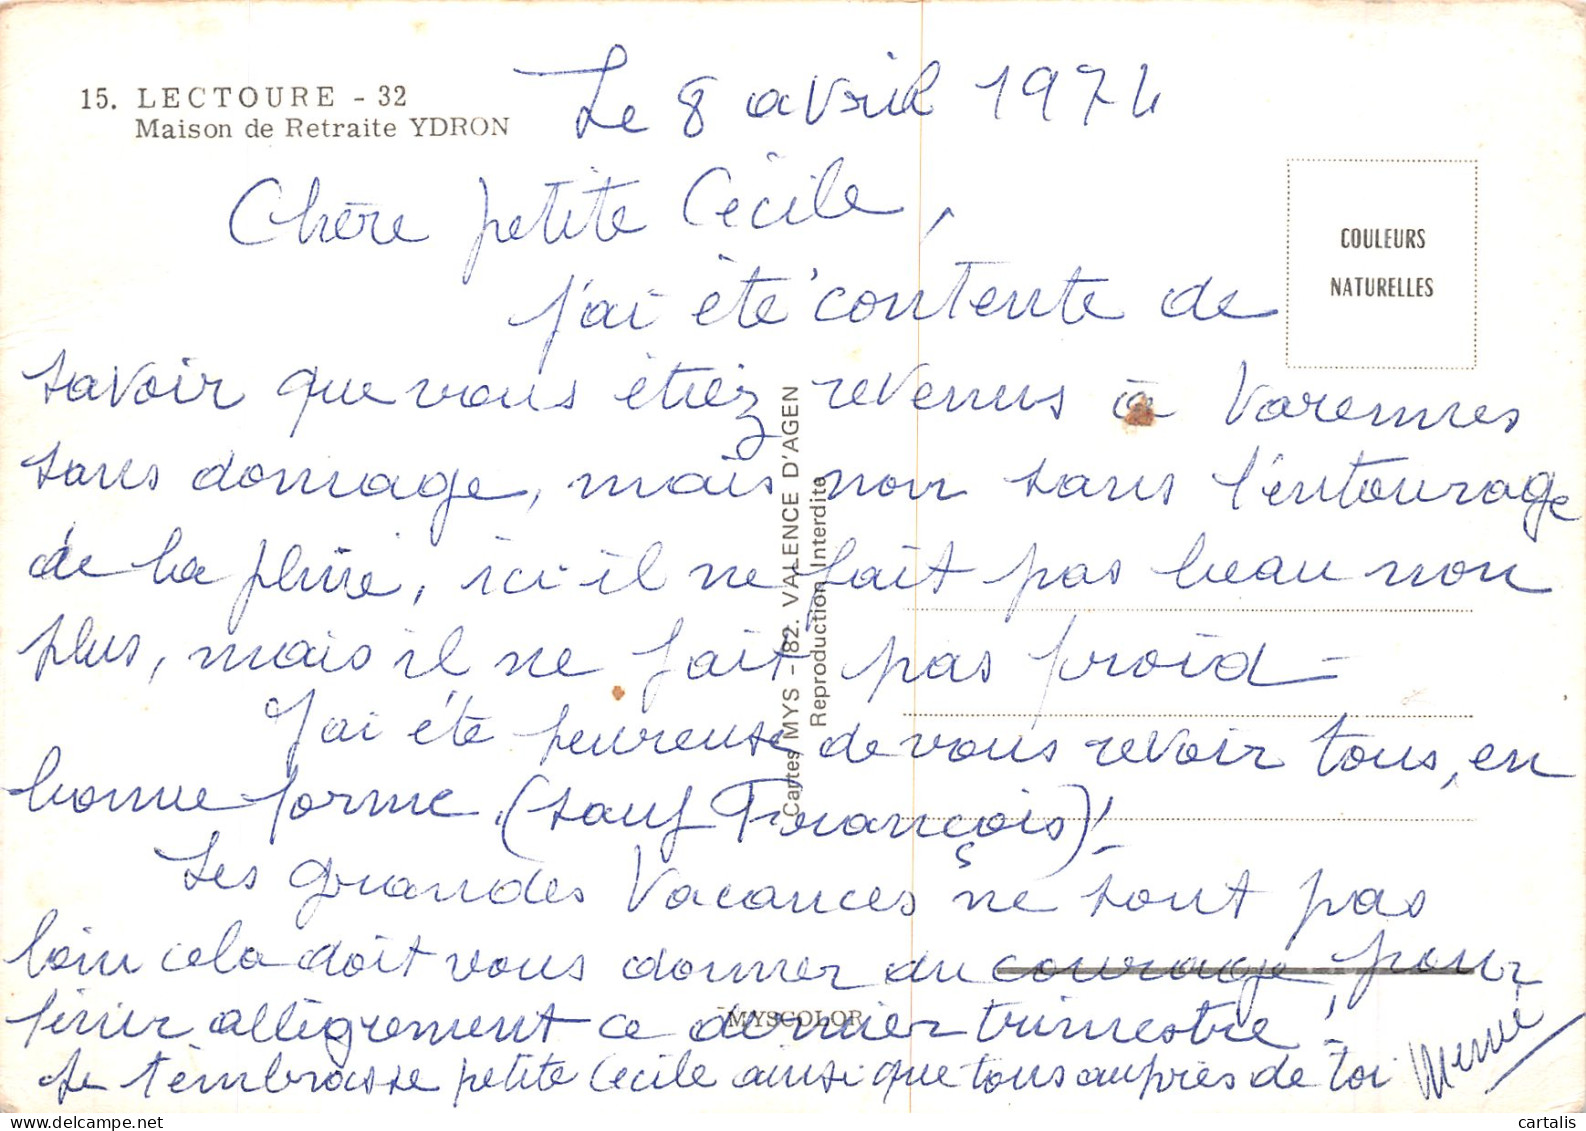 15. LECTOURE - 32
Maison de Retraite YDRON
Le 8 avril 1974
Chère petite Cécile,
COULEURS
NATURELLES
j'ai été contente de
savoir que vous étiez revenus à Varennes
sans domage, mais non sans l'entourage
de la pluie, ici il ne fait pas beau non
plus, mais il ne fait pas froid =
J'ai été heureuse de vous revoir tous, en
bonne forme. (sauf François)!
Les grandes Vacances ne sont pas
loin cela doit vous donner du courage, pour
finir allègrement ce dernier trimestre !
Je t'embrasse petite Cécile ainsi que tous auprès de toi
Mémé
Cartes MYS - 82. VALENCE D'AGEN
Reproduction Interdite
MYSCOLOR
cartalis